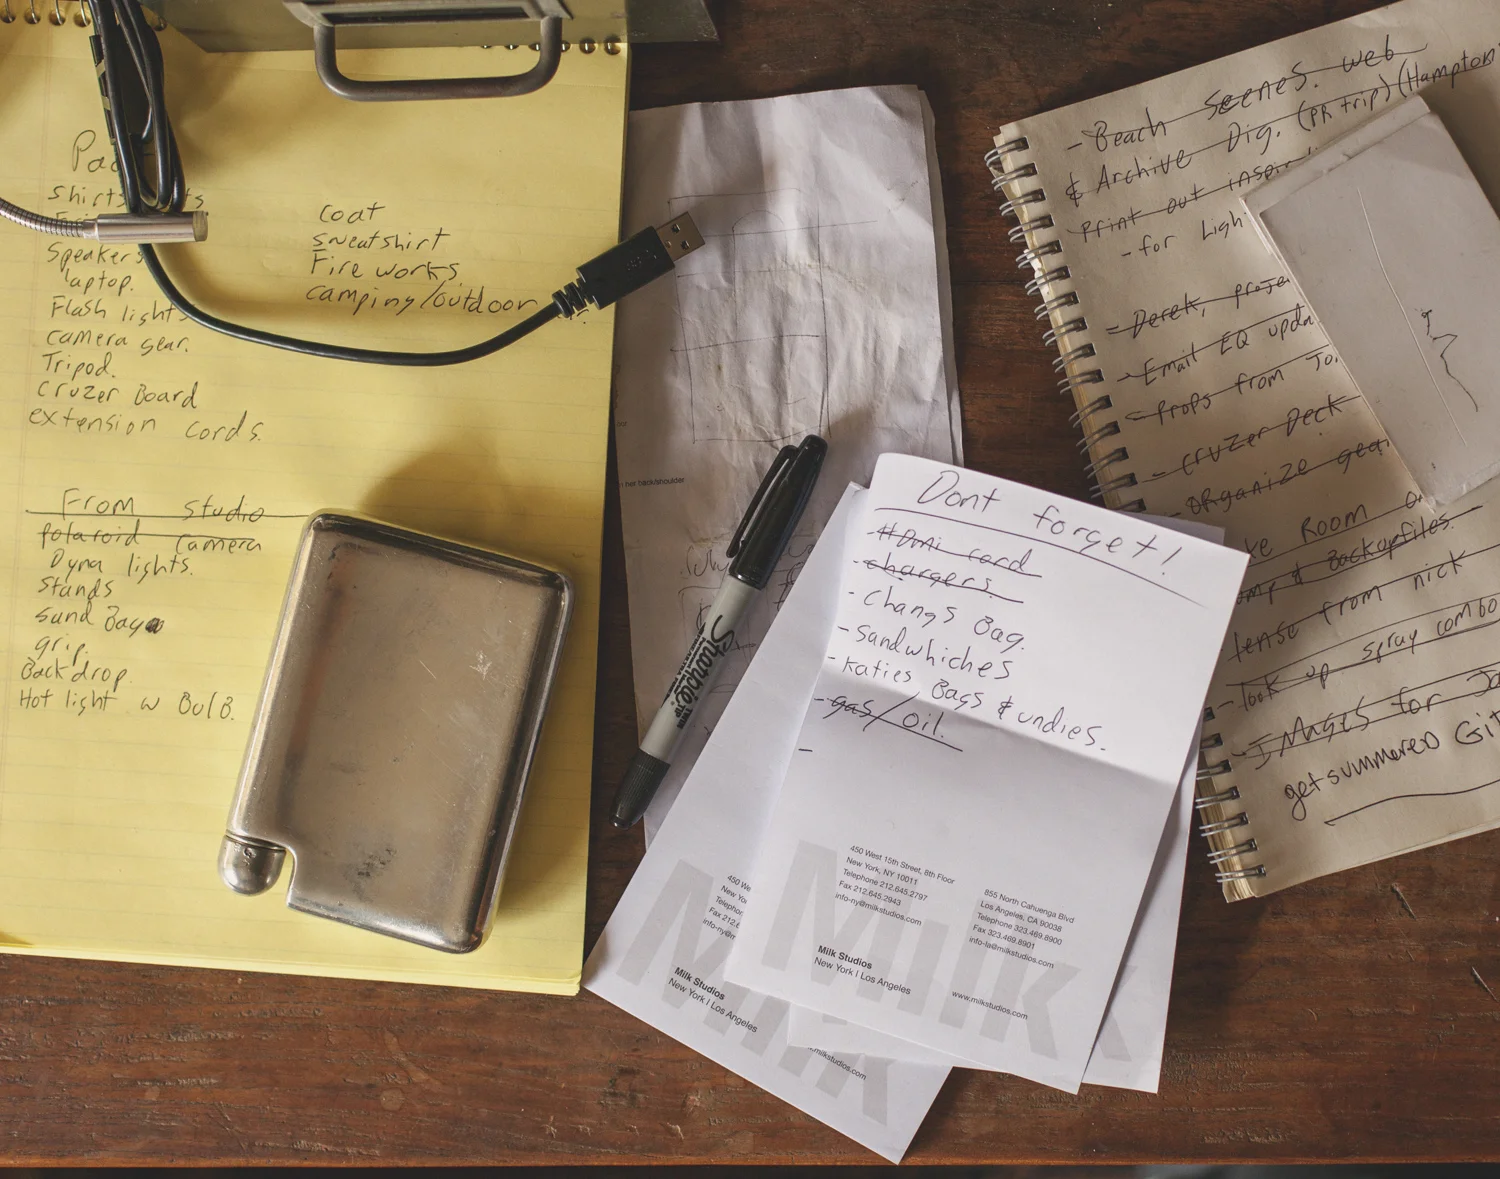 shirts
Speakers
laptop.
Flash lights
camera gear.
Tripod.
cruzer Board
extension cords.
coat
sweatshirt
Fire works
camping/outdoor
From studio
polaroid camera
Dyna lights.
Stands
sand Bag
grip.
Backdrop.
Hot light w Bulb.
n her back/shoulder
Sharpie
TWIN TIP
Dont forget!
- HDMI cord
- chargers.
- Changs Bag.
- Sandwhiches
- Katies Bags & undies.
- gas/oil.
-
450 West 15th Street, 8th Floor
New York, NY 10011
Telephone 212.645.2797
Fax 212.645.2943
info-ny@milkstudios.com
855 North Cahuenga Blvd
Los Angeles, CA 90038
Telephone 323.469.8900
Fax 323.469.8901
info-la@milkstudios.com
Milk Studios
New York | Los Angeles
www.milkstudios.com
Milk
450 We
New Yo
Telephor
Fax 212.6
info-ny@m
Milk Studios
New York | Los Angeles
.milkstudios.com
Milk
- Beach scenes. web
& Archive Dig. (PR trip) (Hampton
print out
- for Ligh
- Derek, proje
- Email EQ upda
- props from
- cruzer Deck
- organize gea
Room
& Backupfiles.
lense from nick
- look up spray combo
- Images for
get summered Git